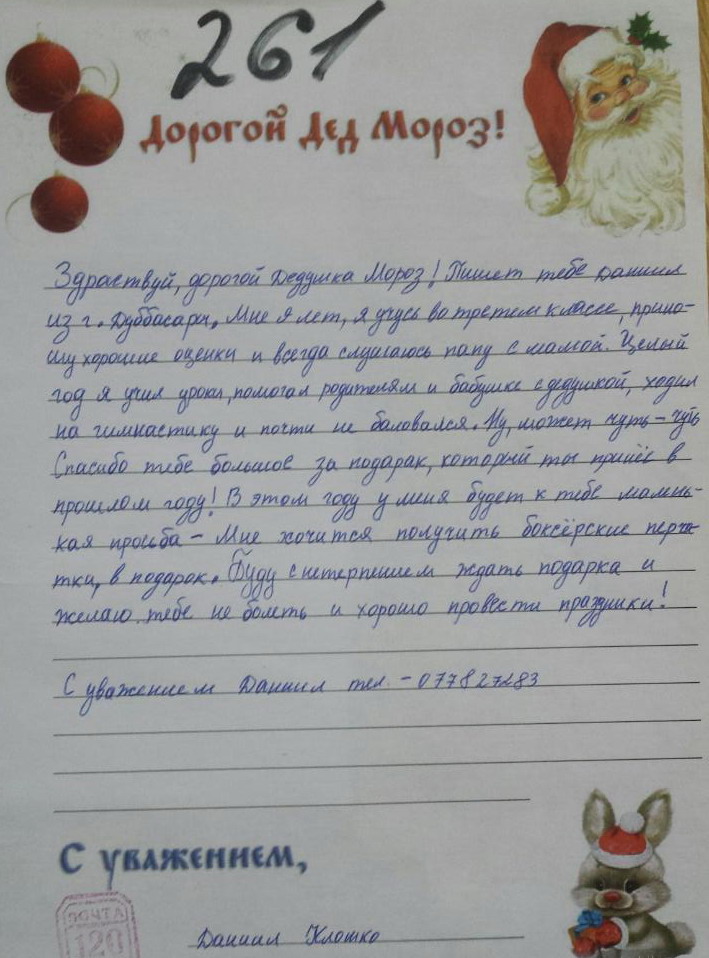 261
Дорогой Дед Мороз!
Здраствуй, дорогой Дедушка Мороз! Пишет тебе Даниил
из г. Дуббасари. Мне 9 лет, я учусь во третем классе, прино-
шу хорошие оценки и всегда слушаюсь папу с мамой. Целый
год я учил уроки, помогал родителям и бабушке с дедушкой, ходил
на гимнастику и почти не баловался. Ну, может чуть-чуть
Спасибо тебе большое за подарак, который ты принёс в
прошлом году! В этом году у меня будет к тебе малень-
кая просьба - Мне хочится получить боксёрские перча-
тки, в подарок. Буду с нетерпением ждать подарка и
желаю тебе не болеть и хорошо провести праздники!
С уважением Даниил тел. - 077827283
С уважением,
ПОЧТА
120
Даниил Клошко